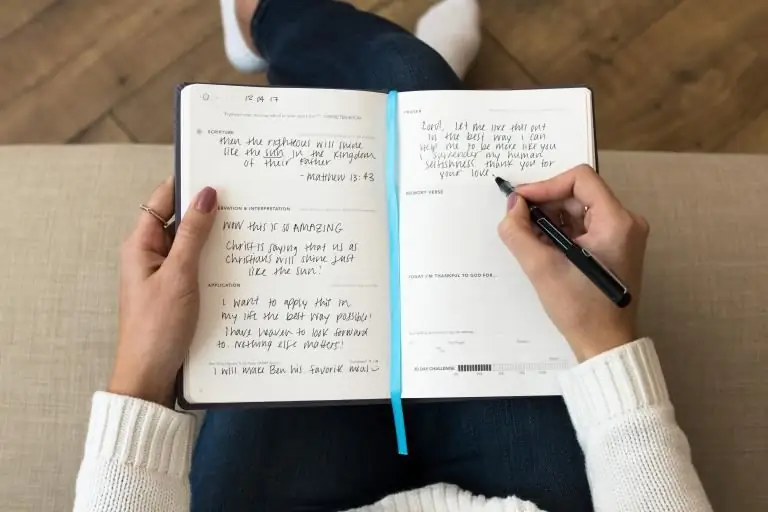 12 04 17
SCRIPTURE
then the righteous will shine
like the sun in the kingdom
of their Father
- Matthew 13:43
OBSERVATION & INTERPRETATION
WOW this is so AMAZING
Christ is saying that us as
Christians will shine just
like the sun!
APPLICATION
I want to apply this in
my life the best way possible!
I have heaven to look forward
to. Nothing else matters!
I will make Ben his favorite meal
PRAYER
Lord, let me live this out
in the best way I can
Help me to be more like you
I surrender my human
selfishness. thank you for
your love.
MEMORY VERSE
TODAY I'M THANKFUL TO GOD FOR...
30 DAY CHALLENGE